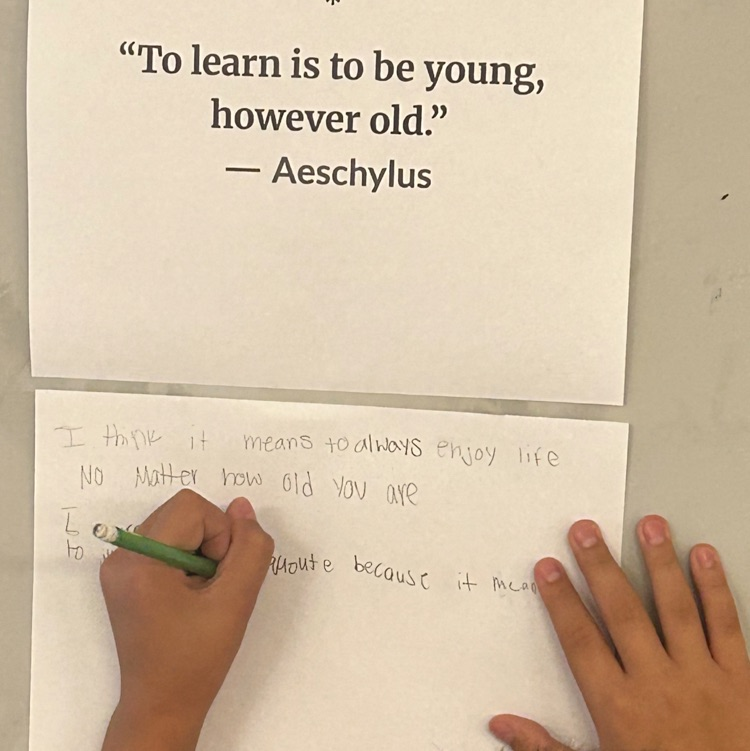 “To learn is to be young,
however old.”
— Aeschylus
I think it means to always enjoy life
No Matter how old you are
I
quoute because it mean
to